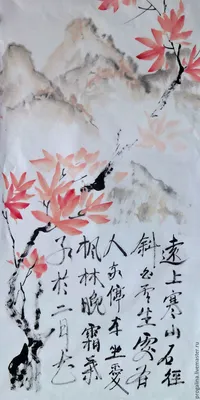 遠上寒山石徑
斜白雲生處有
人家停車坐愛
楓林晚霜葉
紅於二月花